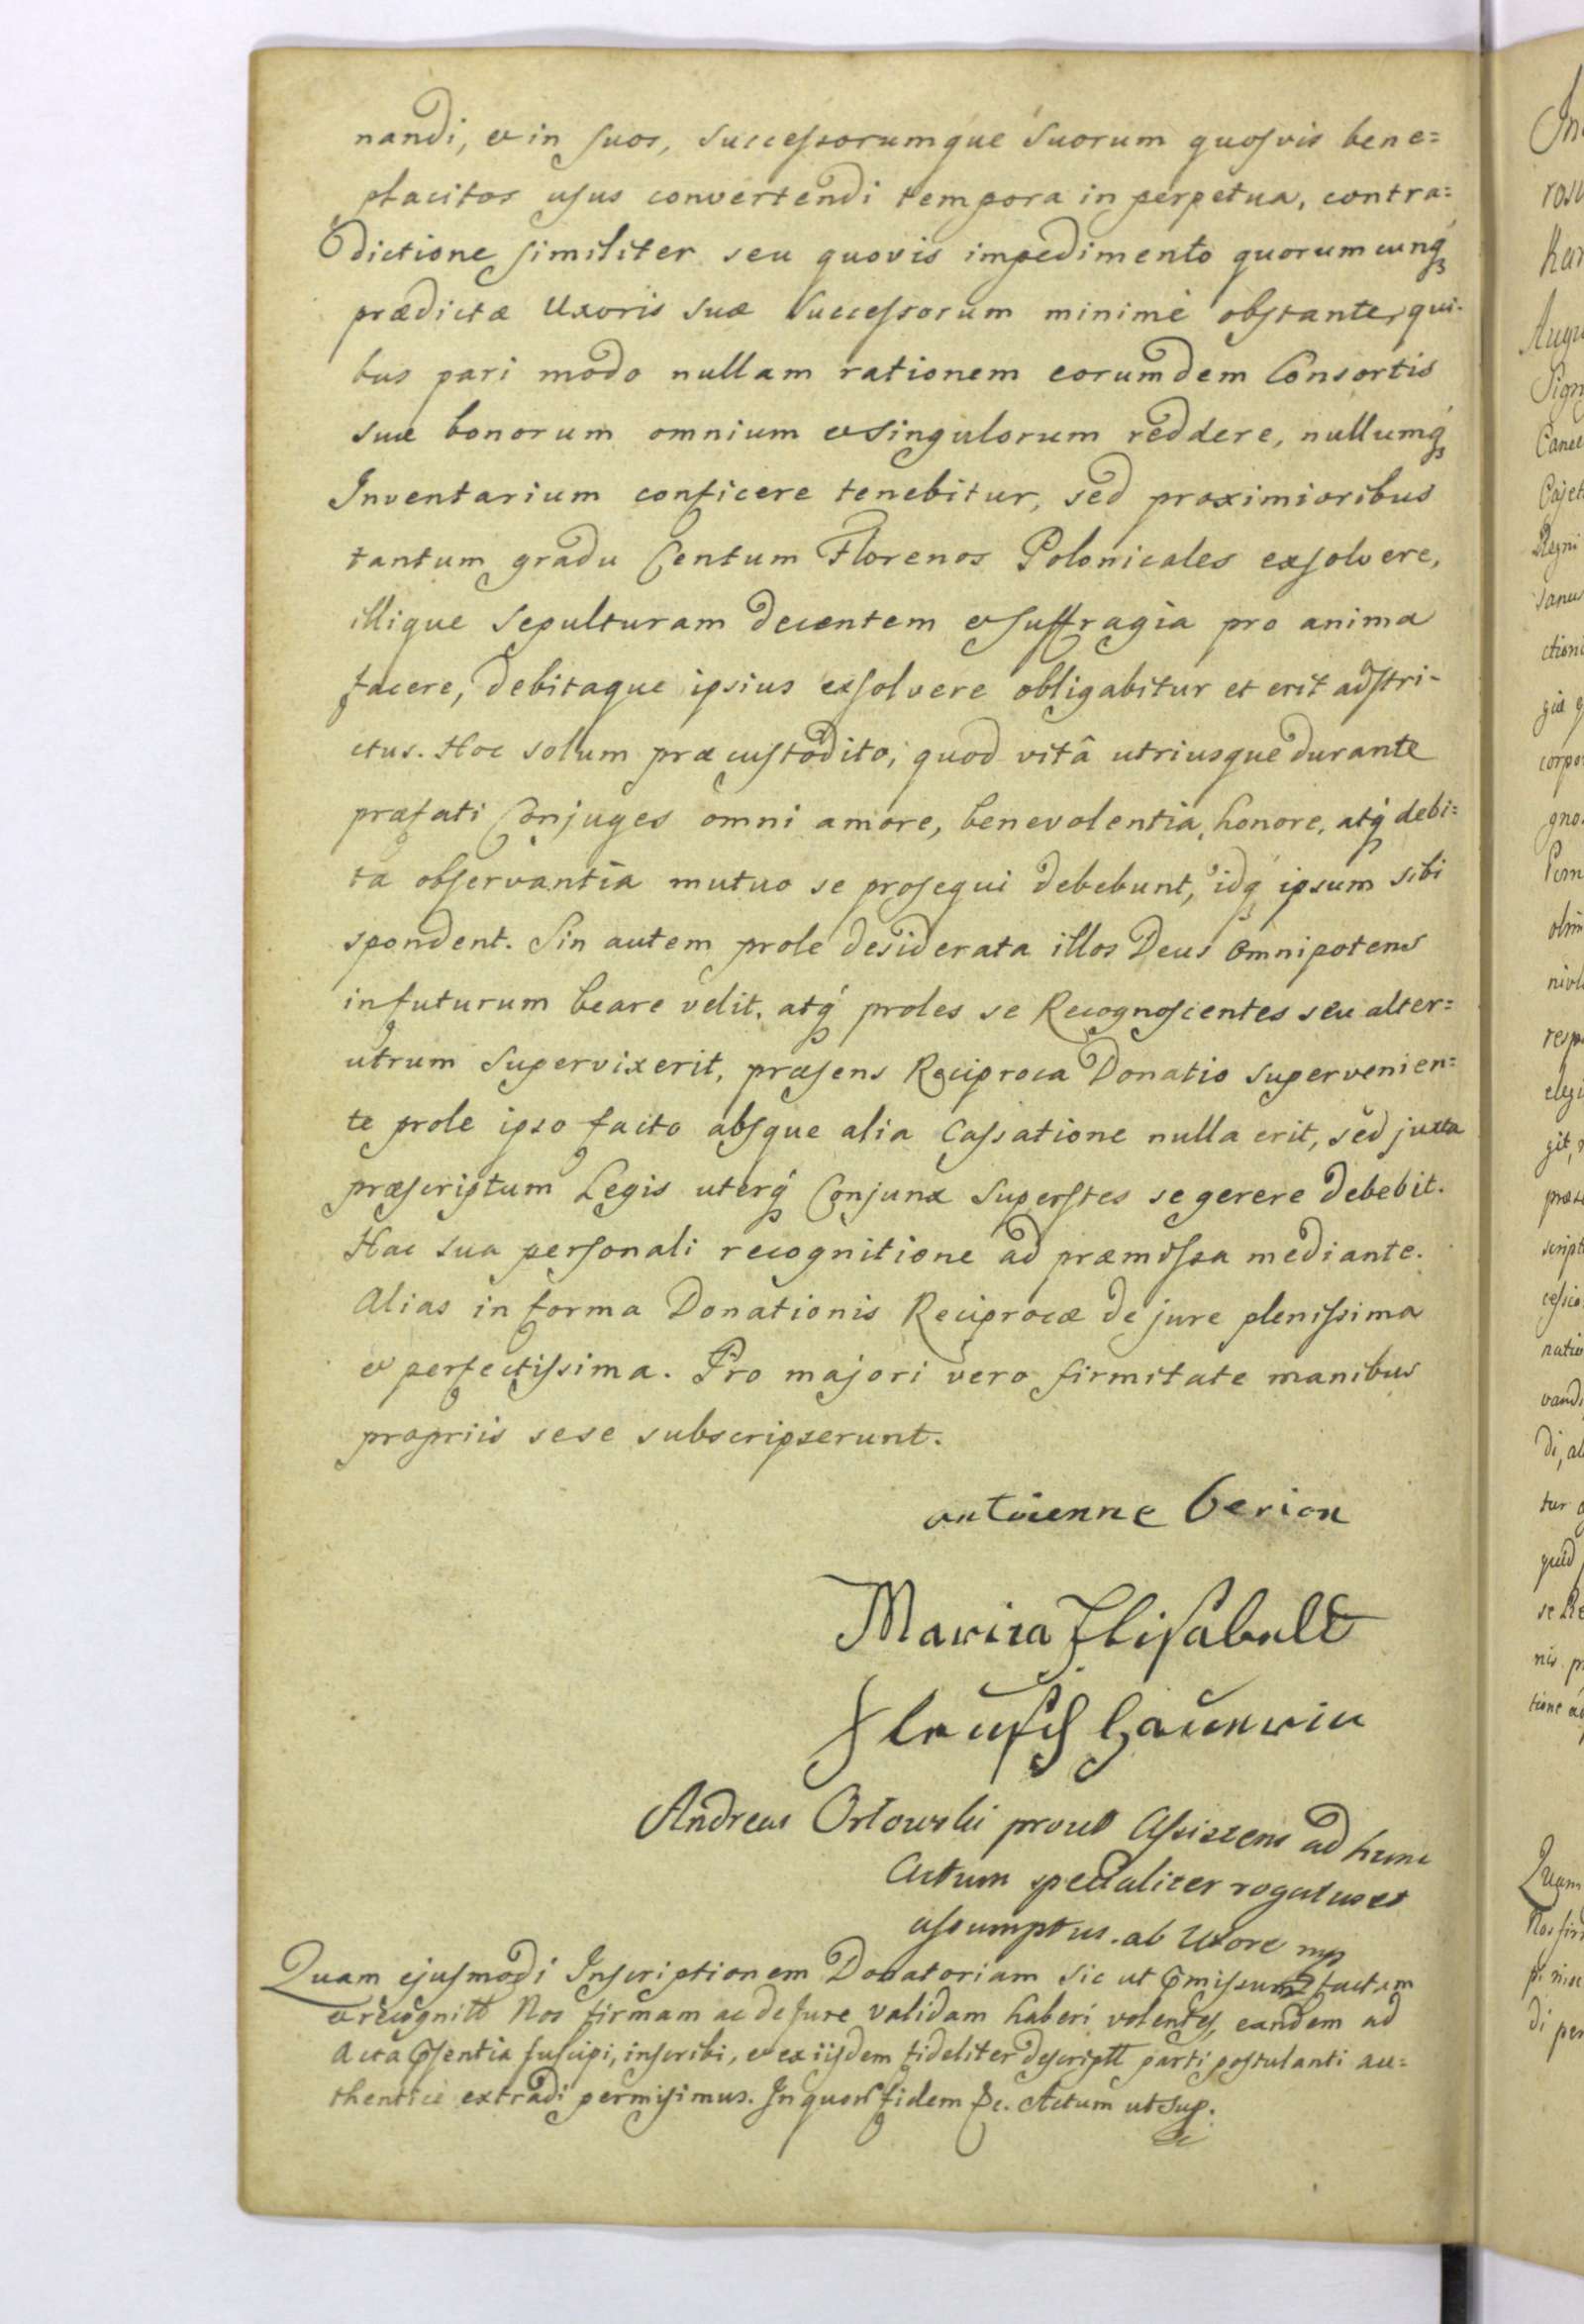 nandi, et in suos, Successorumque Suorum quosvis bene=
placitos usus convertendi tempora in perpetua, contra=
dictione similiter seu quovis impedimento quorumcunq́
prædictæ Uxoris suæ Successorum minimè obstante, qui-
bus pari modo nullam rationem eorumdem Consortis
suæ bonorum omnium et singulorum reddere, nullumq́
Inventarium conficere tenebitur, sed proximioribus
tantum gradu Centum Florenos Polonicales exsolvere,
illique Sepulturam decentem et suffragia pro anima
facere, debitaque ipsius exsolvere obligabitur et erit adstri-
ctus. Hoc solum præcustodito, quod vitâ utriusque durante
præfati Conjuges omni amore, benevolentia, honore, atq́ debi=
ta observantia mutuo se prosequi debebunt, idq́ ipsum sibi
spondent. Sin autem prole desiderata illos Deus Omnipotens
in futurum beare velit, atq́ proles se Recognoscentes seu alter=
utrum Supervixerit, præsens Reciproca Donatio supervenien=
te prole ipso facto absque alia Cassatione nulla erit, sed juxta
præscriptum Legis uterq́ Conjunx Superstes se gerere debebit.
Hac sua personali recognitione ad præmissa mediante.
Alias in forma Donationis Reciprocæ de jure plenissima
et perfectissima. Pro majori vero firmitate manibus
propriis sese subscripserunt.
antoienne Berion
Maria Elisabett
Andreas Orłowski prout Assistens ad hunc
Actum specialiter rogatus et
assumptus ab Uxore mp
Quam ejusmodi Inscriptionem Donatoriam sic ut factam
et recognitt Nos firmam ac de Jure validam haberi volentes, eandem ad
Acta suscipi, inscribi, et ex iisdem fideliter descriptt parti postulanti au=
thentice extradi permisimus. In quor fidem &c. Actum ut sup.
&c